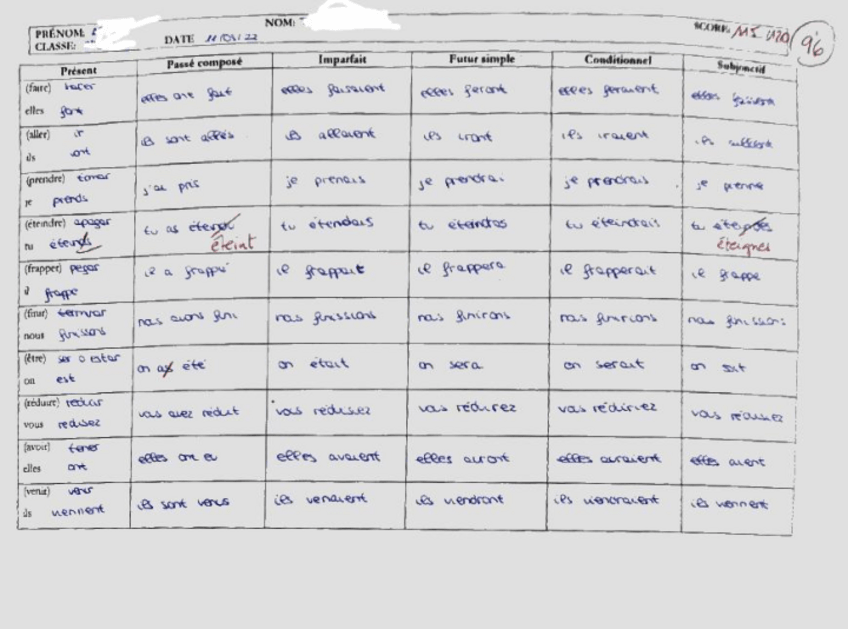 PRÉNOM: NOM: SCORE: 115 120 96
CLASSE: DATE 11/03/22
Présent Passé composé Imparfait Futur simple Conditionnel Subjonctif
(faire) hacer
elles font elles ont fait elles faisaient elles feront elles feraient elles fassent
(aller) ir
ils vont ils sont allés ils allaient ils iront ils iraient ils
(prendre) tomar
je prends j'ai pris je prenais je prendrai je prendrais je prenne
(éteindre) apagar
tu tu as éteint tu étendais tu éteindras tu éteindrais tu éteignes
(frapper) pegar
il frappe il a frappé il frappait il frappera il frapperait il frappe
(finir) terminar
nous finissons nous avons fini nous finissions nous finirons nous finirions nous finissions
(être) ser o estar
on est on a été on était on sera on serait on soit
(réduire) reducir
vous reduisez vous avez réduit vous réduisez vous réduirez vous réduiriez vous réduisiez
(avoir) tener
elles ont elles ont eu elles avaient elles auront elles auraient elles aient
(venir) venir
ils viennent ils sont venus ils venaient ils viendront ils viendraient ils viennent